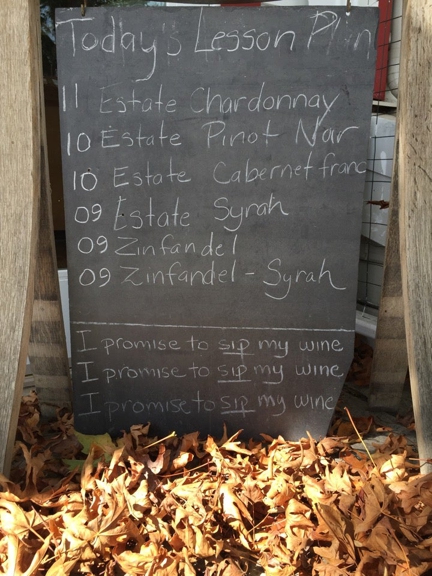 Today's Lesson Plan
11 Estate Chardonnay
10 Estate Pinot Noir
10 Estate Cabernet franc
09 Estate Syrah
09 Zinfandel
09 Zinfandel - Syrah
I promise to sip my wine
I promise to sip my wine
I promise to sip my wine